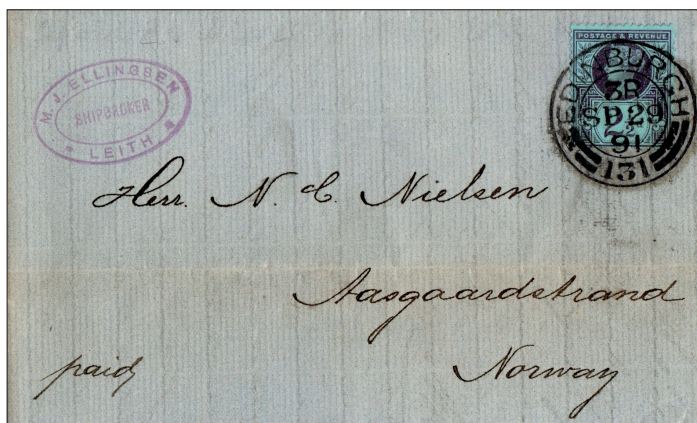 M. J. ELLINGSEN
SHIPBROKER
LEITH
POSTAGE & REVENUE
EDINBURGH
3R
SP 29
91
131
2½
Herr. N. C. Nielsen
Aasgaardstrand
Norway
paid